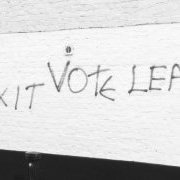 XIT VOTE LEA